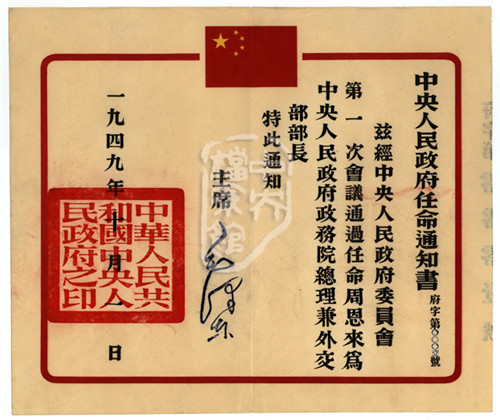 中央人民政府任命通知書
府字第〇〇〇號
茲經中央人民政府委員會
第一次會議通過任命周恩來爲
中央人民政府政務院總理兼外交
部部長
特此通知
主席
毛澤東
一九四九年十月一日
中華人民共
和國中央人
民政府之印
中央
檔案館